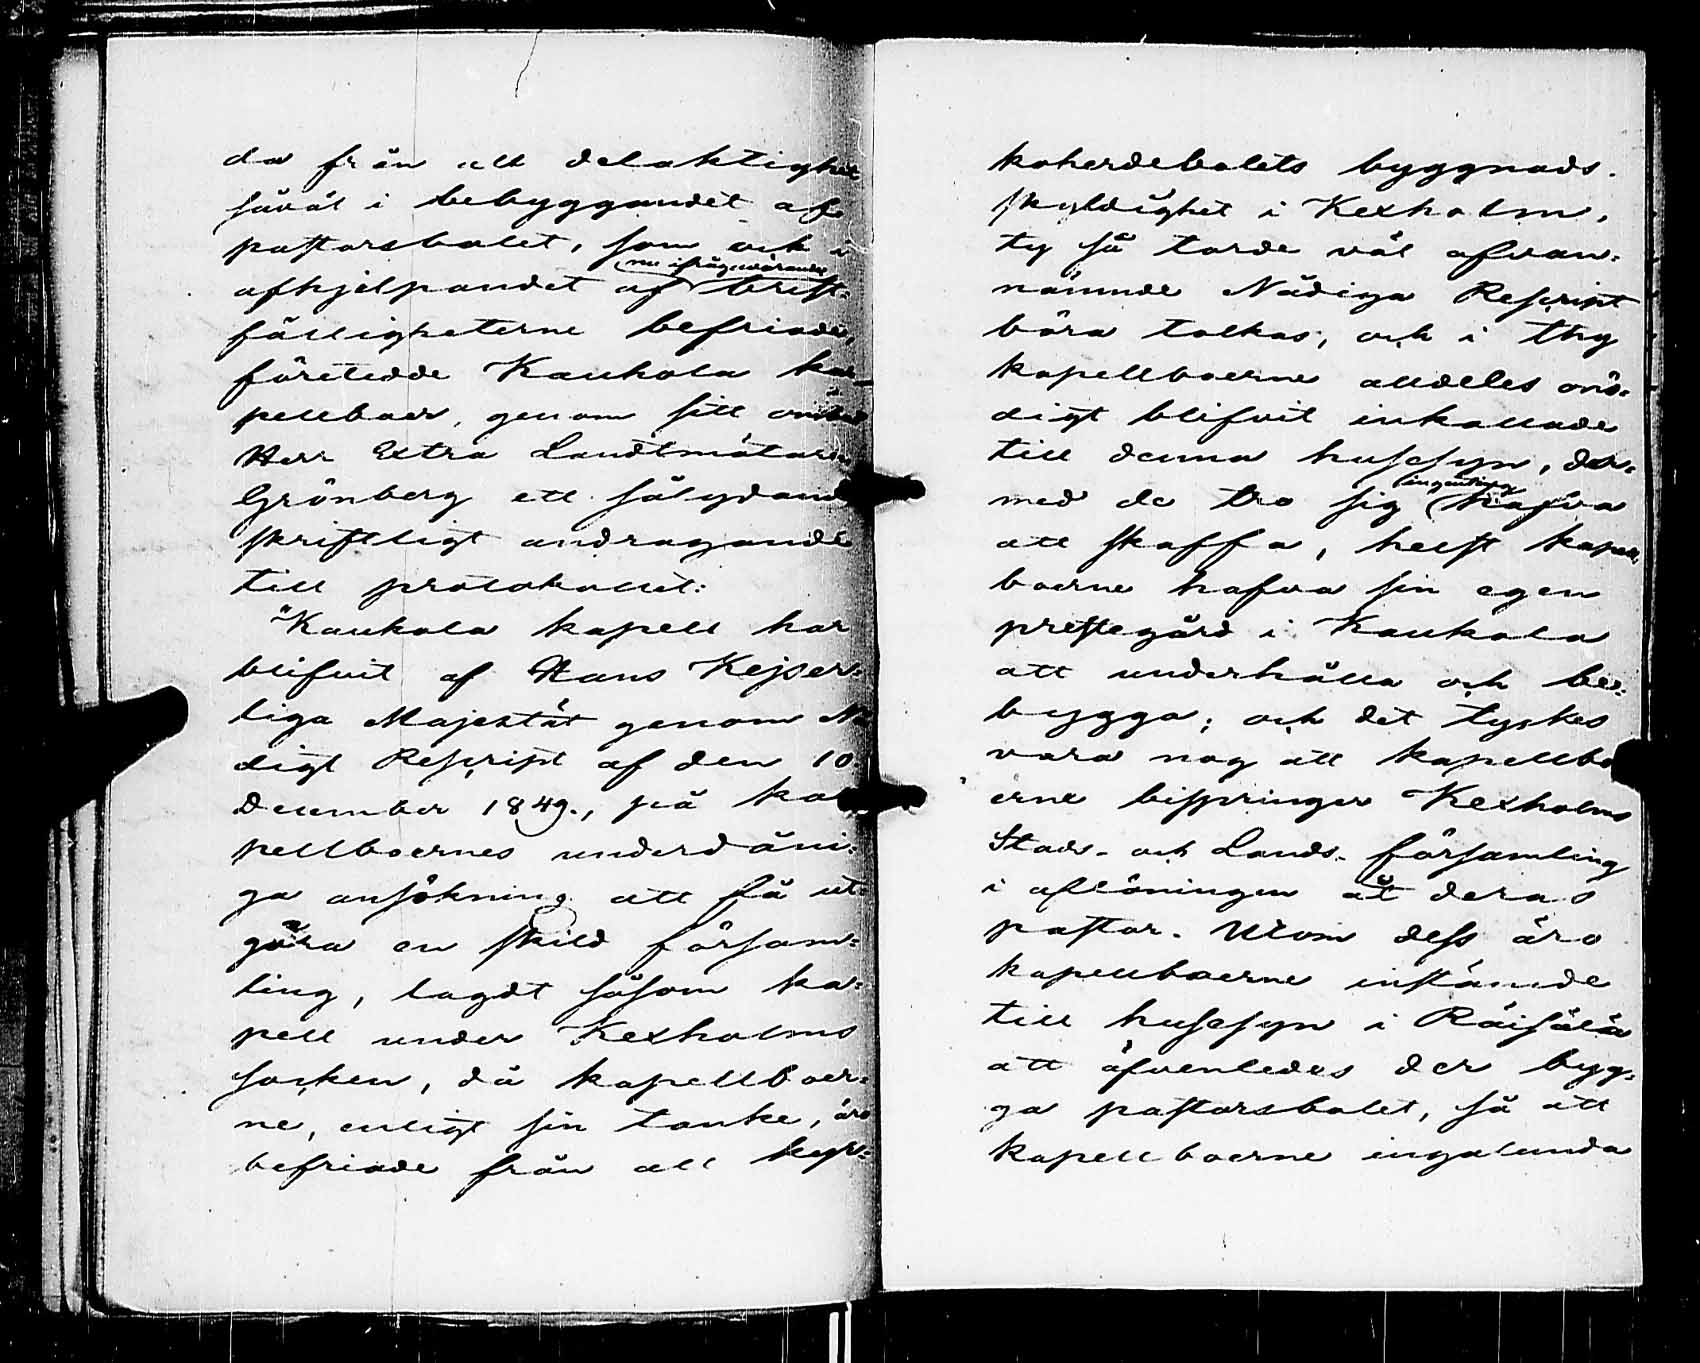 da från all delaktighet
såväl i bebyggandet af
pastorsbolet, som ock i
nu ifrågavarande
afhjelpandet af brist-
fälligheterne befriade,
företedde Kaukola ka-
pellboer, genom sitt ombud
Herr Extra Landtmätaren
Grönberg ett sålydande
skriftligt andragande
till protokollet:
"Kaukola kapell har
blifvit af Hans Kejser-
liga Majestät genom Nå-
digt Rescript af den 10
December 1849., på ka-
pellboernes underdåni-
ga ansökning att få ut-
göra en skild försam-
ling, lagdt såsom ka-
pell under Kexholms
socken, då kapellboer-
ne, enligt sin tanke, äro
befriade från all kyr-
koherdebolets byggnads-
skyldighet i Kexholm,
ty så torde väl ofvan-
nämnde Nådiga Rescript
böra tolkas, och i thy
kapellboerne alldeles onö-
digt blifvit inkallade
till denna husesyn, der-
ingenting
med de tro sig hafva
att skaffa, helst kapell-
boerne hafva sin egen
prestegård i Kaukola
att underhålla och be-
bygga; och det tyckes
vara nog att kapellbo-
erne bispringer Kexholms
Stads- och Lands-församling
i aflöningen åt deras
pastor. Utom dess äro
kapellboerne instämde
till husesyn i Räisälä
att äfvenledes der byg-
ga pastorsbolet, så att
kapellboerne ingalunda